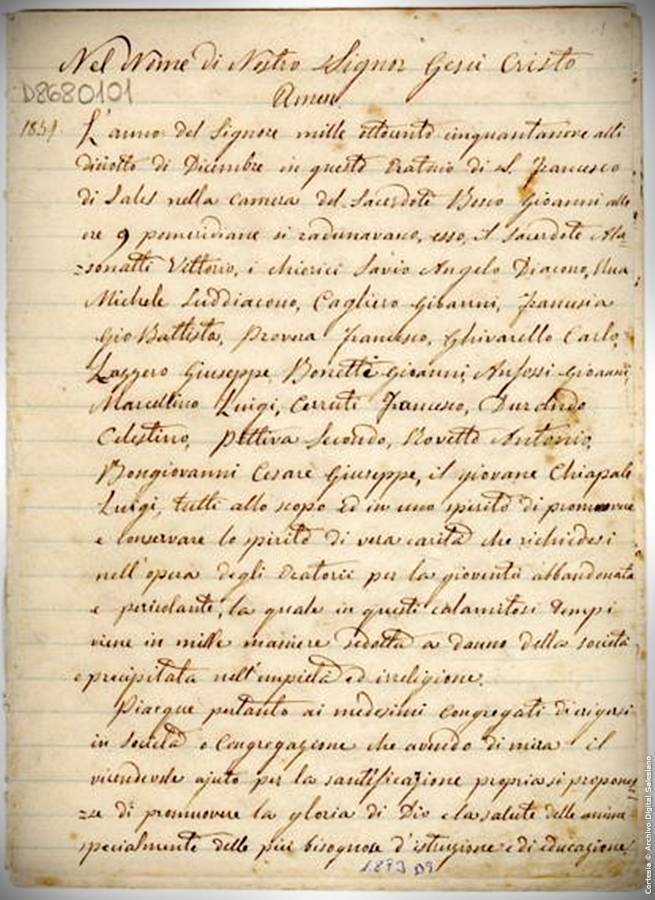 Nel Nome di Nostro Signor Gesù Cristo
Amen
D8680101
1859. L'anno del Signore mille ottocento cinquantanove alli
diciotto di Dicembre in questo Oratorio di S. Francesco
di Sales nella camera del Sacerdote Bosco Giovanni alle
ore 9 pomeridiane si radunavano, esso, il Sacerdote Ala=
=sonatti Vittorio, i chierici Savio Angelo Diacono, Rua
Michele Suddiacono, Cagliero Giovanni, Francesia
Gio Battista, Provera Francesco, Ghivarello Carlo,
Lazzero Giuseppe, Bonetti Giovanni, Anfossi Giovanni,
Marcellino Luigi, Cerruti Francesco, Durando
Celestino, Pettiva Secondo, Rovetto Antonio,
Bongiovanni Cesare Giuseppe, il giovane Chiapale
Luigi, tutti allo scopo ed in uno spirito di promuovere
e conservare lo spirito di vera carità che richiedesi
nell'opera degli Oratorii per la gioventù abbandonata
e pericolante, la quale in questi calamitosi tempi
viene in mille maniere sedotta a danno della società
e precipitata nell'empietà ed irreligione.
Piacque pertanto ai medesimi Congregati di erigersi
in Società o Congregazione che avendo di mira il
vicendevole ajuto per la santificazione propria si propones=
=se di promuovere la gloria di Dio e la salute delle anime
specialmente delle più bisognose d'istruzione e di educazione
Cortesia © Archivo Digital Salesiano